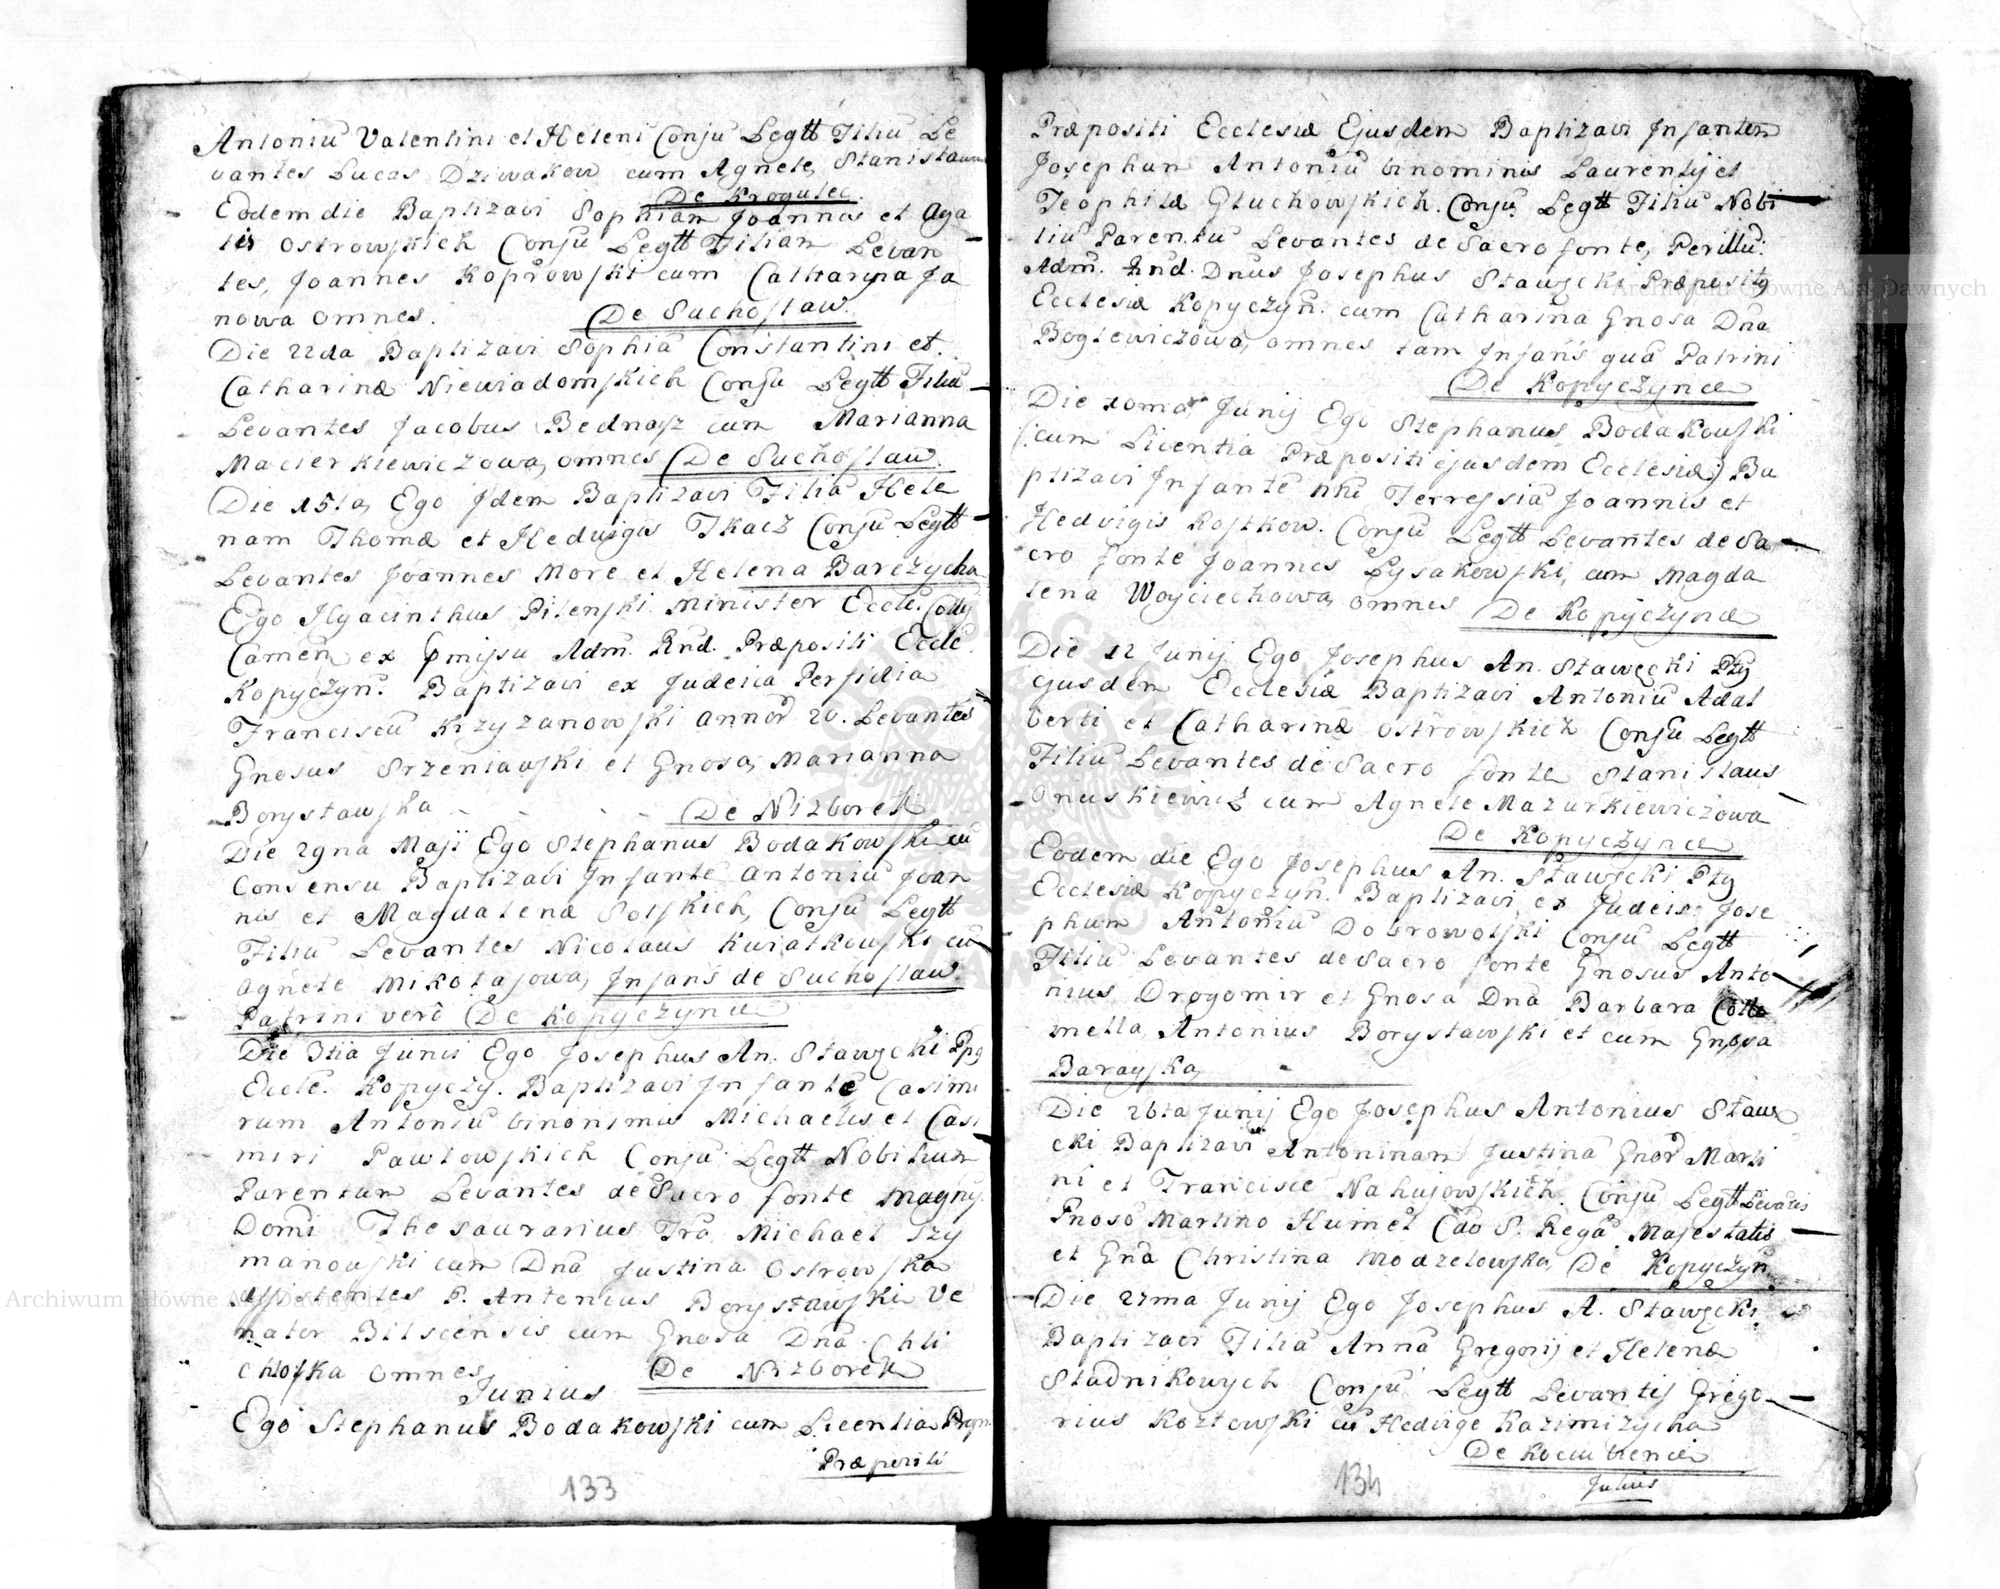 Antoniū Valentini et Heleni Conjū Legtt Filiū Le
vantes Lucas Dziwakow cum Agnete Stanisława
De Krogulec
Eodem die Baptizavi Sophiam Joannis et Aga
tis Ostrowskich Conjū Legtt Filiam Levan
tes, Joannes Koprowski cum Catharyna Ja
nowa omnes. De Suchostaw.
Die 22da Baptizavi Sophiā Constantini et
Catharinæ Niewiadomskich Conjū Legtt Filiā
Levantes Jacobus Bednasz cum Marianna
Macierkiewiczowa, omnes De Suchostaw.
Die 15ta, Ego Idem Baptizavi Filiā Hele
nam Thomæ et Hedvigis Tkacz Conjū Legtt
Levantes Joannes More et Helena Barczycha
Ego Hyacinthus Pilenski Minister Eccle. Colly
Camen. ex pmissu Adm. Rnd. Præpositi Eccle.
Kopyczyn. Baptizavi ex Judeica Perfidia
Franciscū Krzyzanowski annor 20. Levantes
Gnosus Srzeniawski et Gnosa, Marianna
Borystawska De Nizborek
Die 29na Maji Ego Stephanus Bodakowski cū
Consensu Baptizavi Infantē Antoniū Joan
nis et Magdalenæ Solskich, Conjū Legtt
Filiū Levantes Nicolaus Kwiatkowski cū
Agnete Mikołajowa, Infans de Suchostaw.
Patrini verò De Kopyczynce
Die 3tia Junii Ego Josephus An. Stawęcki Ppg
Eccle. Kopyczy. Baptizavi Infantē Casimi
rum Antoniū binonimis Michaelis et Casi
miri Pawłowskich Conju Legtt Nobilium
Parentum Levantes de Sacro fonte Magny.
Domi Thesaurarius Tro. Michael Szy
manowski cum Dnā Justina Ostrowska
Assistentes P. Antonius Borystawski Ve
nator Bilscensis cum Gnosa Dnā Chli
chloska omnes De Nizborek
Junius
Ego Stephanus Bodakowski cum Licentia
Præpositi
133
Præpositi Ecclesiæ Ejusdem Baptizavi Infantem
Josephum Antoniū binominis Laurentij et
Teophilæ Gluchowskich. Conjū Legtt Filiū Nobi
liū Parentū Levantes de Sacro fonte, Perillu:
Adm. Rnd. Dnus Josephus Stawęcki Præpositg
Ecclesiæ Kopyczyn. cum Catharina Gnosa Dna
Bogtewiczowa, omnes tam Infans quā Patrini
De Kopyczynce
Die 10ma Junij Ego Stephanus Bodakowski
(:cum Licentia Præpositi ejusdem Ecclesiæ:) Ba
ptizavi Infantē Terressiā Joannis et
Hedvigis Rostkow. Conjū Legtt Levantes de Sa
cro fonte Joannes Lysakowski, cum Magda
lena Woyciechowa, omnes De Kopyczynce
Die 12 Junij Ego Josephus An. Stawęcki Ptg
Ejusdem Ecclesiæ Baptizavi Antoniū Adal
berti et Catharinæ Ostrowskich Conjū Legtt
Filiū Levantes de Sacro fonte Stanistaus
Onuskiewicz cum Agnete Mazurkiewiczowa
De Kopyczynce
Eodem die Ego Josephus An. Stawęcki Ptg
Ecclesiæ Kopyczyn. Baptizavi ex Judeis Jose
phum Antoniū Dobrowolski Conjū Legtt
Filiū Levantes de Sacro fonte Gnosus Anto
nius Drogomir et Gnosa Dna Barbara
mella, Antonius Borystawski et cum Gnosa
Barayska,
Die 26ta Junij Ego Josephus Antonius Staw
cki Baptizavi Antoninam Justinā Gnor Marti
ni et Francisce Nahujowskich Conju Legtt Levātes
Pnoso Martino Humet Cao S. Regā Majestatis
et Gnā Christina Modzelowska, De Kopyczyn.
Die 27ma Junij Ego Josephus A. Stawęcki
Baptizavi Filiā Annā Gregorij et Helenæ
Stadnikowych Conjū Legtt Levantij Grego
rius Kozłowski cū Hedvige Kazimizycha
De Kociubence
Julius
134
Archiwum Główne Akt Dawnych
Archiwum Główne Akt Dawnych